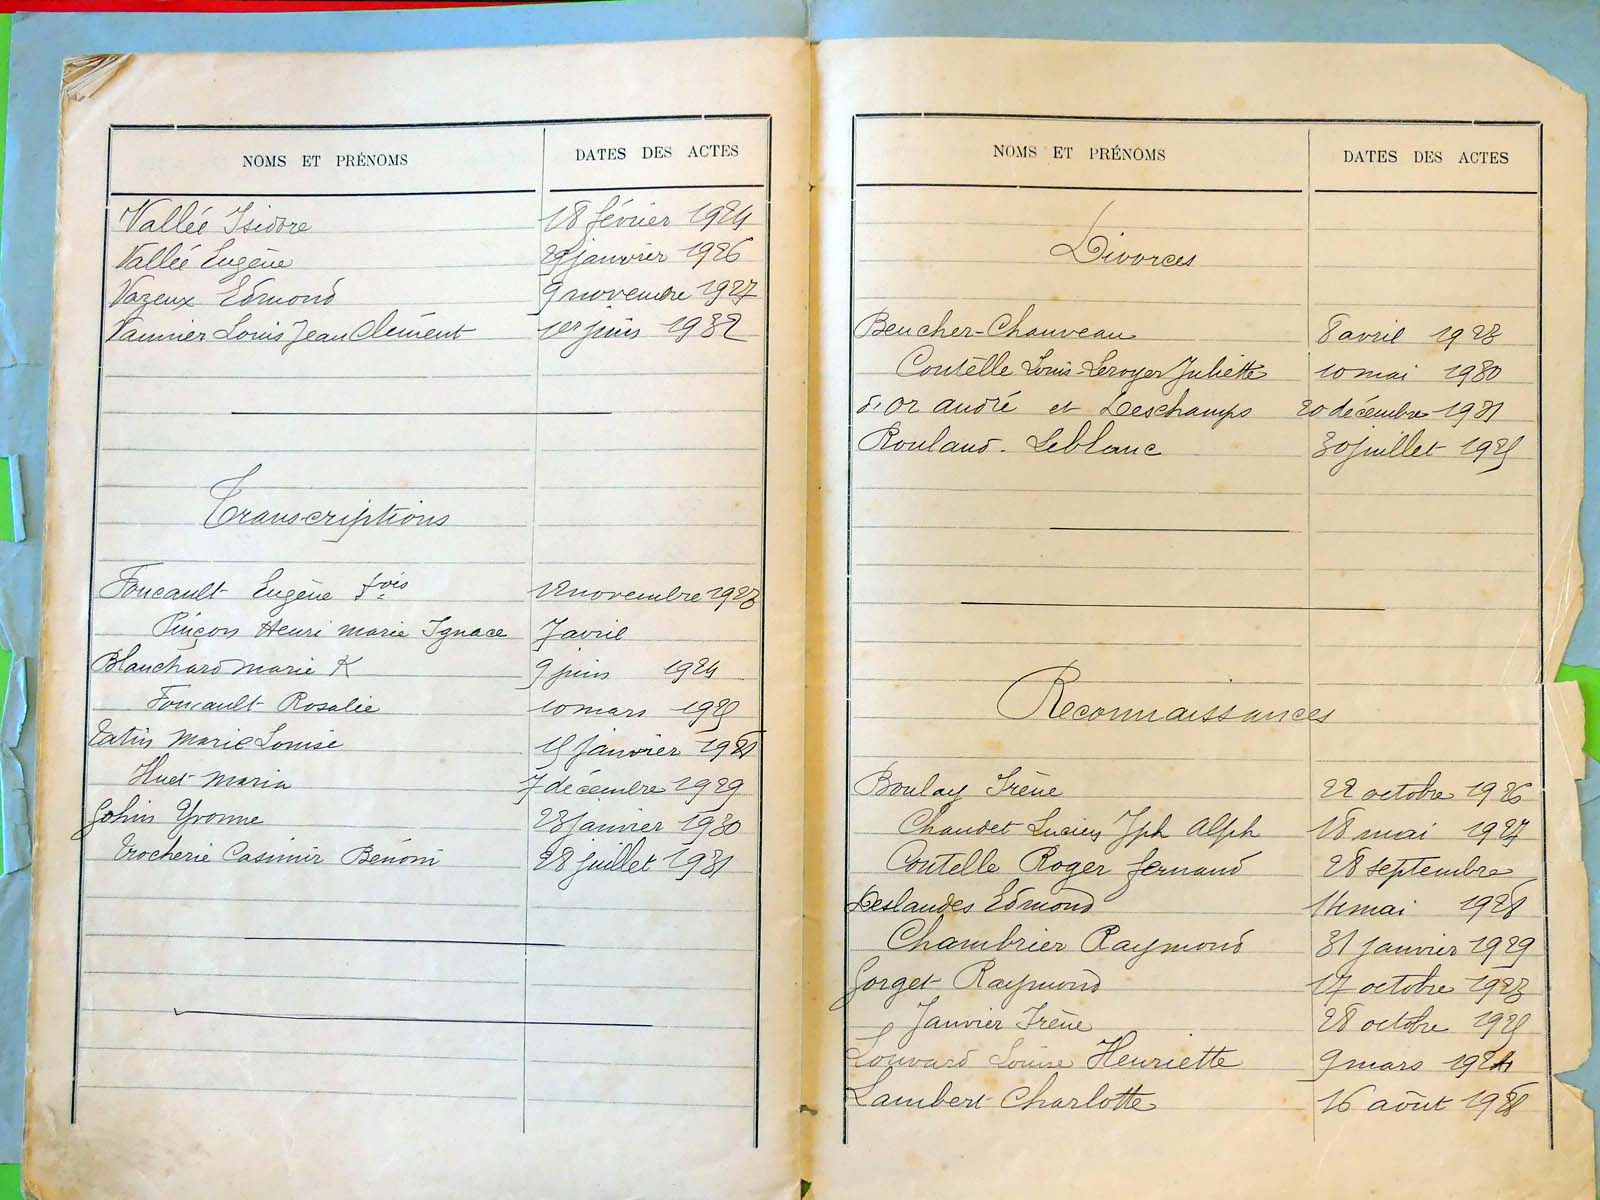 NOMS ET PRÉNOMS DATES DES ACTES
Vallée Isidore 18 février 1924
Vallée Eugène 29 janvier 1926
Vazeux Edmond 9 novembre 1927
Vannier Louis Jean Clément 1er juin 1932
Transcriptions
Foucault Eugène Fois 12 novembre 1923
Pinçon Henri Marie Ignace 7 avril
Blanchard Marie K 9 juin 1924
Foucault Rosalie 10 mars 1925
Tatin Marie Louise 15 janvier
Huet Maria 7 décembre 1929
Gohin Yvonne 23 janvier 1930
Trocherie Casimir Bénoni 28 juillet 1931
NOMS ET PRÉNOMS DATES DES ACTES
Divorces
Beucher-Chauveau 8 avril 1923
Coutelle Louis-Leroyer Juliette 10 mai 1930
d'Or André et Deschamps 20 décembre 1931
Rouland-Leblanc 30 juillet 1925
Reconnaissances
Boulay Irène 22 octobre 1926
Chaudet Lucien Jph Alph 18 mai 1927
Coutelle Roger Fernand 28 septembre
Deslandes Edmond 14 mai 1928
Chambrier Raymond 31 janvier 1929
Gorget Raymond 17 octobre 1923
Janvier Irène 28 octobre 1925
Louvard Louise Henriette 9 mars 1924
Lambert Charlotte 16 août 1928